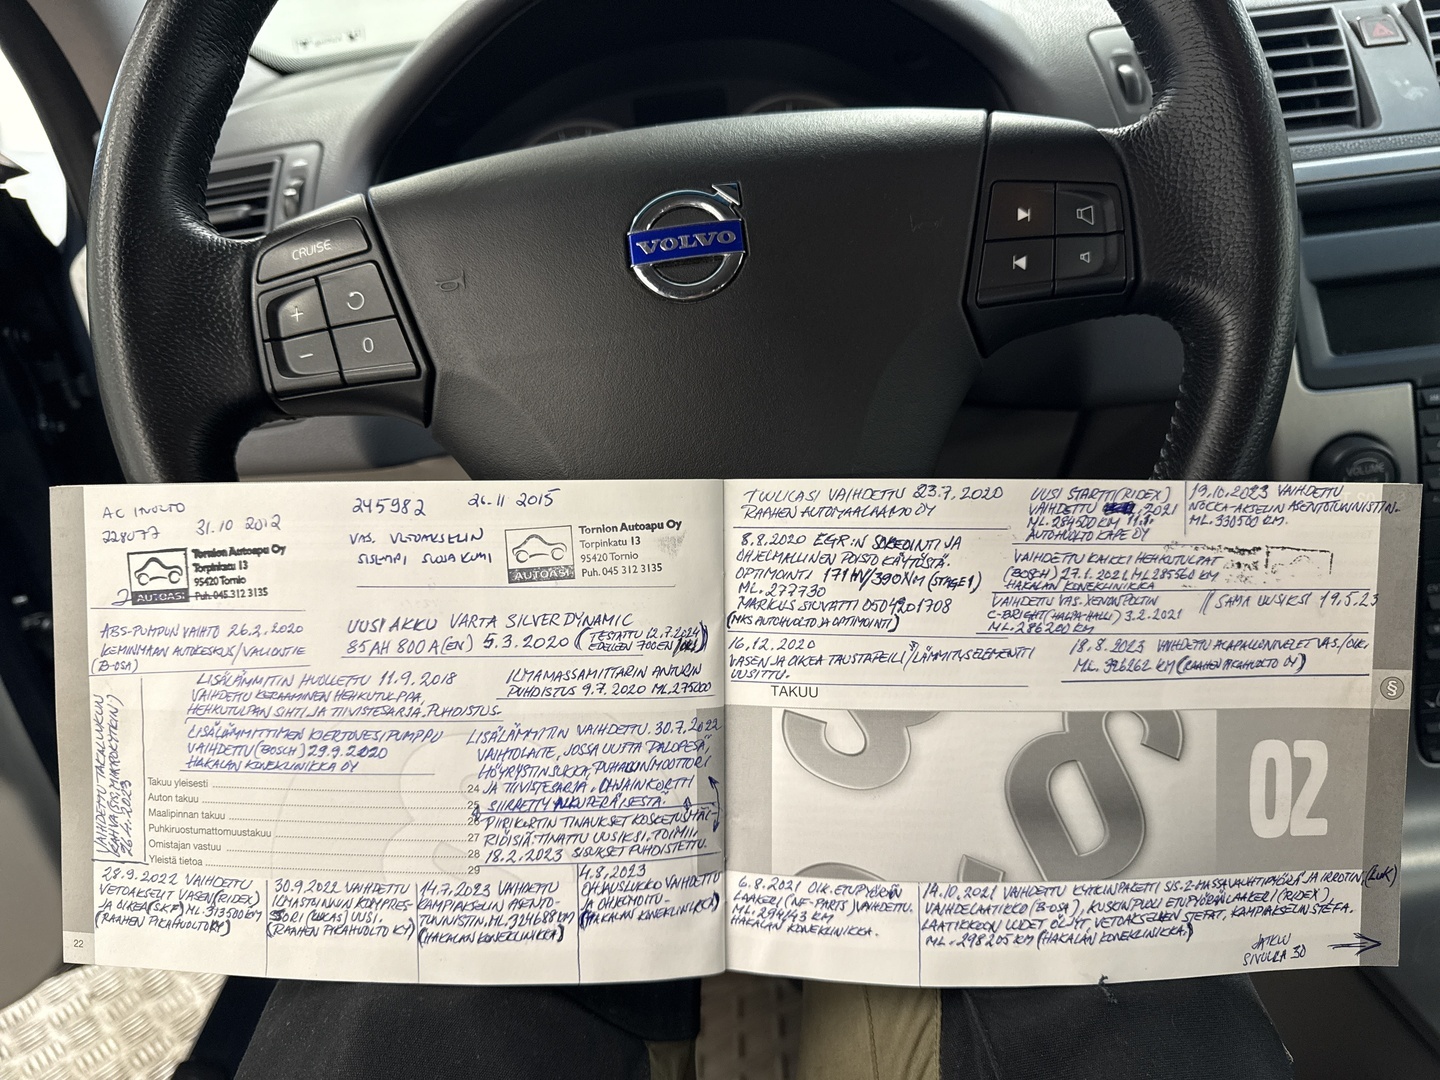 CRUISE
VOLVO
VOLUME
AC HUOLTO
228077
31.10 2012
Tornion Autoapu Oy
Torpinkatu 13
95420 Tornio
Puh. 045 312 3135
AUTOASI
245982
26.11 2015
VAS. VETOAKSELIN
SISEMPI SUOJAKUMI
Tornion Autoapu Oy
Torpinkatu 13
95420 Tornio
Puh. 045 312 3135
AUTOASI
ABS-PUMPUN VAIHTO 26.2.2020
KEMINMAAN AUTOKESKUS/VARAOSA
(B-OSA)
UUSI AKKU VARTA SILVER DYNAMIC
85AH 800A(EN) 5.3.2020 (TESTATTU 12.7.2024
EDELLEEN 700EN/OK!)
VAIHDETTU TAKALUUKUN
KAHVA (SIS. MIKROKYTKIN)
26.4.2023
LISÄLÄMMITIN HUOLLETTU 11.9.2018
VAIHDETTU KERAAMINEN HEHKUTULPPA,
HEHKUTULPAN SIHTI JA TIIVISTESARJA. PUHDISTUS.
ILMAMASSAMITTARIN ANTURIN
PUHDISTUS 9.7.2020 ML.275000
LISÄLÄMMITTIMEN KIERTOVESIPUMPPU
VAIHDETTU (BOSCH) 29.9.2020
HAKALAN KONEKLINIKKA OY
LISÄLÄMMITIN VAIHDETTU 30.7.2022
VAIHTOLAITE, JOSSA UUTTA PALOPESÄ,
HÖYRYSTINSUKKA, PUHALLINMOOTTORI
JA TIIVISTESARJA. OHJAINKORTTI
SIIRRETTY ALKUPERÄISESTÄ.
PIIRIKORTIN TINAUKSET KOSKETUSHÄI-
RIÖISIÄ. TINATTU UUSIKSI. TOIMII.
18.2.2023 SISUKSET PUHDISTETTU.
Takuu yleisesti 24
Auton takuu 25
Maalipinnan takuu 26
Puhkiruostumattomuustakuu 27
Omistajan vastuu 28
Yleistä tietoa 29
28.9.2022 VAIHDETTU
VETOAKSELIT VASEN (RIDEX)
JA OIKEA (SKF) ML 313500KM
(RAAHEN PIKAHUOLTO KY)
30.9.2022 VAIHDETTU
ILMASTOINNIN KOMPRES-
SORI (LUKAS) UUSI.
(RAAHEN PIKAHUOLTO KY)
14.7.2023 VAIHDETTU
KAMPIAKSELIN ASENTO-
TUNNISTIN. ML.324688KM
(HAKALAN KONEKLINIKKA)
4.8.2023
OHJAUSLUKKO VAIHDETTU
JA OHJELMOITU
(HAKALAN KONEKLINIKKA)
22
TUULILASI VAIHDETTU 23.7.2020
RAAHEN AUTOMAALAAMO OY
8.8.2020 EGR:N SOKEOINTI JA
OHJELMALLINEN POISTO KÄYTÖSTÄ.
OPTIMOINTI 171HV/390NM (STAGE1)
ML. 277730
MARKUS SIUVATTI 0504201708
(MKS AUTOHUOLTO JA OPTIMOINTI)
16.12.2020
VASEN JA OIKEA TAUSTAPEILI/LÄMMITYSELEMENTTI
UUSITTU.
UUSI STARTTI (RIDEX)
VAIHDETTU 2021
ML. 284500 KM 11.1.
AUTOHUOLTO KAPE OY
19.10.2023 VAIHDETTU
NOKKA-AKSELIN ASENTOTUNNISTIN.
ML. 330500 KM.
VAIHDETTU KAIKKI HEHKUTULPAT
(BOSCH) 27.1.2021 ML 285560 KM
HAKALAN KONEKLINIKKA
VAIHDETTU VAS. XENON POLTIN
C-BRIGHT 3.2.2021
ML. 286200 KM
// SAMA UUSIKSI 19.5.23
18.8.2023 VAIHDETTU ALAPALLONIVELET VAS./OIK.
ML. 326262 KM (RAAHEN PIKAHUOLTO OY)
TAKUU
§
02
6.8.2021 OIK. ETUPYÖRÄN
LAAKERI (NF-PARTS) VAIHDETTU.
ML. 294143 KM
HAKALAN KONEKLINIKKA.
14.10.2021 VAIHDETTU KYTKINPAKETTI SIS. 2-MASSAVAUHTIPYÖRÄ JA IRROTIN, (LUK)
VAIHDELAATIKKO (B-OSA), KUSKIN PUOLI ETUPYÖRÄNLAAKERI (RIDEX),
LAATIKKOON UUDET ÖLJYT, VETOAKSELIEN STEFAT, KAMPIAKSELIN STEFA.
ML. 298205 KM (HAKALAN KONEKLINIKKA.)
JATKUU
SIVULLA 30